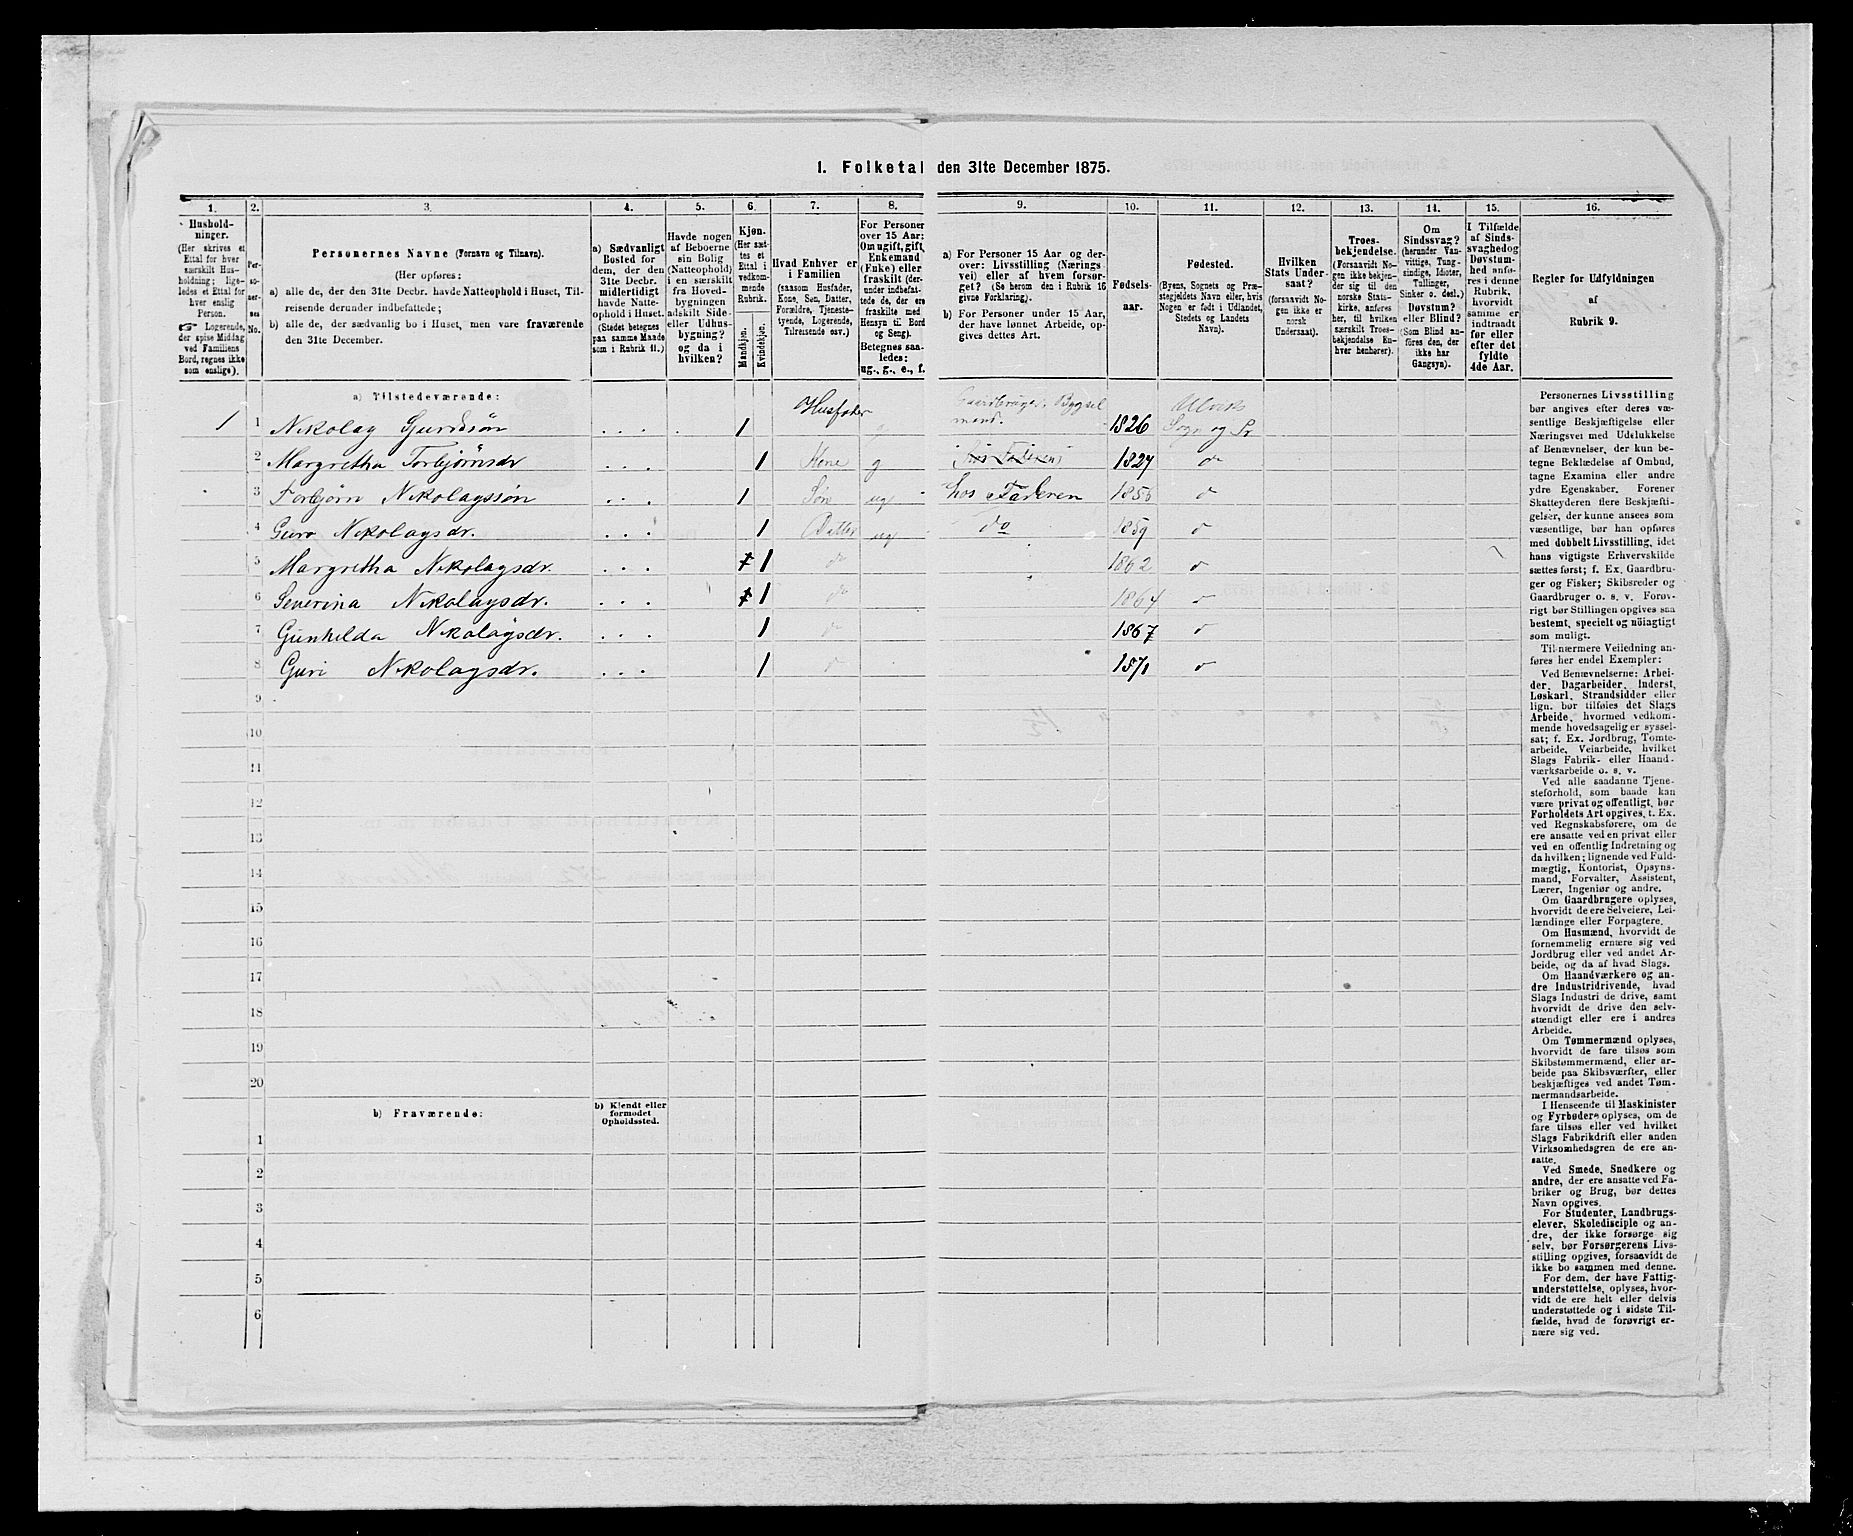 1. Folketal den 31te December 1875.
1. 2. 3. 4. 5. 6. 7. 8. 9. 10. 11. 12. 13. 14. 15. 16.
Hushold-
ninger.
(Her skrives et
Ettal for hver
særskilt Hus-
holdning; lige-
ledes et Ettal for
hver enslig
Person.
☞ Logerende,
der spise Middag
ved Familiens
Bord, regnes ikke
som enslige).
Per-
so-
ner-
nes
No.
Personernes Navne (Fornavn og Tilnavn).
(Her opføres:
a) alle de, der den 31te Decbr. havde Natteophold i Huset, Til-
reisende derunder indbefattede;
b) alle de, der sædvanlig bo i Huset, men vare fraværende
den 31te December.
a) Sædvanligt
Bosted for
dem, der den
31te Decbr.
midlertidigt
havde Natte-
ophold i Huset.
(Stedet betegnes
paa samme Maade
som i Rubrik 11.)
Havde nogen
af Beboerne
sin Bolig
(Natteophold)
i en særskilt
fra Hoved-
bygningen
adskilt Side-
eller Udhus-
bygning?
og da i
hvilken?
Kjøn.
(Her sæt-
tes et
Ettal i
vedkom-
mende
Rubrik.
Mandkjøn.
Kvindekjøn.
Hvad Enhver er
i Familien
(saasom Husfader,
Kone, Søn, Datter,
Forældre, Tjeneste-
tyende, Logerende,
Tilreisende osv.)
For Personer
over 15 Aar:
Om ugift, gift,
Enkemand
(Enke) eller
fraskilt (der-
under indbefat-
tede de, der ere
fraskilte med
Hensyn til Bord
og Seng).
Betegnes saa-
ledes:
ug., g., e., f.
a) For Personer 15 Aar og der-
over: Livsstilling (Nærings
vei) eller af hvem forsør-
get? (Se herom den i Rubrik 16
givne Forklaring).
b) For Personer under 15 Aar,
der have lønnet Arbeide, op-
gives dettes Art.
Fødsels-
aar.
Fødested.
(Byens, Sognets og Præ-
stegjeldets Navn eller, hvis
Nogen er født i Udlandet,
Stedets og Landets
Navn).
Hvilken
Stats Under-
saat?
(forsaavidt No-
gen ikke er
norsk
Undersaat).
Troes-
bekjendelse.
(Forsaavidt No-
gen ikke bekjen-
der sig til den
norske Stats-
kirke, anføres
her, til hvilken
særskilt Troes-
bekjendelse En-
hver henhører).
Om
Sindssvag?
(herunder Van-
vittige, Tung-
sindige, Idioter,
Tullinger,
Sinker o. desl.)
Døvstum?
eller Blind?
(Som Blind an-
føres den, der
ikke har
Gangsyn).
I Tilfælde
af Sinds-
svaghed og
Døvstum-
hed anfø-
res i denne
Rubrik,
hvorvidt
samme er
indtraadt
før eller
efter det
fyldte
4de Aar.
Regler for Udfyldningen
af
Rubrik 9.
a) Tilstedeværende:
1 1 Nikolay Gurdsøn 1 Husfader g Gaardbruger. Bygsel mand. 1826 Ulviks Sogn og Pr
2 Margretha Torbjørnsdr 1 Kone g Hos Faderen 1827 do
3 Torbjørn Nikolayssøn 1 Søn ug hos Faderen 1856 do
4 Guro Nikolaysdr. 1 Datter ug do 1859 do
5 Margretha Nikolaysdr. 1 1 do 1862 do
6 Severina Nikolaysdr. 1 1 do 1864 do
7 Gunhilda Nikolaysdr. 1 do 1867 do
8 Guri Nikolaysdr. 1 do 1871 do
9
10
11
12
13
14
15
16
17
18
19
20
b) Fraværende:
b) Kjendt eller
formodet
Opholdssted.
1
2
3
4
5
6
Personernes Livsstilling
bør angives efter deres væ-
sentlige Beskjæftigelse eller
Næringsvei med Udelukkelse
af Benævnelser, der kun be-
tegne Beklædelse af Ombud,
tagne Examina eller andre
ydre Egenskaber. Forener
Skatteyderen flere Beskjæfti-
gelser, der kunne ansees som
væsentlige, bør han opføres
med dobbelt Livsstilling, idet
hans vigtigste Erhvervskilde
sættes først; f. Ex. Gaardbru-
ger og Fisker; Skibsreder og
Gaardbruger o. s. v. Forøv-
rigt bør Stillingen opgives saa
bestemt, specielt og nöiagtigt
som muligt.
Til nærmere Veiledning an-
føres her endel Exempler:
Ved Benævnelserne: Arbei-
der, Dagarbeider, Inderst,
Løskarl, Strandsidder eller
lign. bør tilføies det Slags
Arbeide, hvormed vedkom-
mende hovedsagelig er syssel-
sat; f. Ex. Jordbrug, Tomte-
arbeide, Veiarbeide, hvilket
Slags Fabrik- eller Haand-
værksarbeide o. s. v.
Ved alle saadanne Tjene-
steforhold, som baade kan
være privat og offentligt, bør
Forholdets Art opgives, t. Ex.
ved Regnskabsførere, om de
ere ansatte ved en privat eller
ved en offentlig Indretning og
da hvilken; lignende ved Fuld-
mægtig, Kontorist, Opsyns-
mand, Forvalter, Assistent,
Lærer, Ingeniør og andre.
Om Gaardbrugere oplyses,
hvorvidt de ere Selveiere, Lei-
lændinge eller Forpagtere.
Om Husmænd, hvorvidt de
fornemmelig ernære sig ved
Jordbrug eller ved andet Ar-
beide, og da af hvad Slags.
Om Haandværkere og an-
dre Industridrivende, hvad
Slags Industri de drive, samt
hvorvidt de drive den selv-
stændigt eller ere i andres
Arbeide.
Om Tømmermænd oplyses,
hvorvidt de fare tilsøs som
Skibstømmermænd, eller ar-
beide paa Skibsværfter, eller
beskjæftiges ved andet Tøm-
mermandsarbeide.
I Henseende til Maskinister
og Fyrbødere oplyses, om de
fare tilsøs eller ved hvilket
Slags Fabrikdrift eller anden
Virksomhedsgren de ere an-
satte.
Ved Smede, Snedkere og
andre, der ere ansatte ved Fa-
briker og Brug, bør dettes
Navn opgives.
For Studenter, Landbrugs-
elever, Skoledisciple og an-
dre, der ikke forsørge sig
selv, bør Forsørgerens Livs-
stilling opgives, forsaavidt de
ikke bo sammen med denne.
For dem, der have Fattig-
understøttelse, oplyses, hvor-
vidt de ere helt eller delvis
understøttede og i sidste Til-
fælde, hvad de forøvrigt er-
nære sig ved.